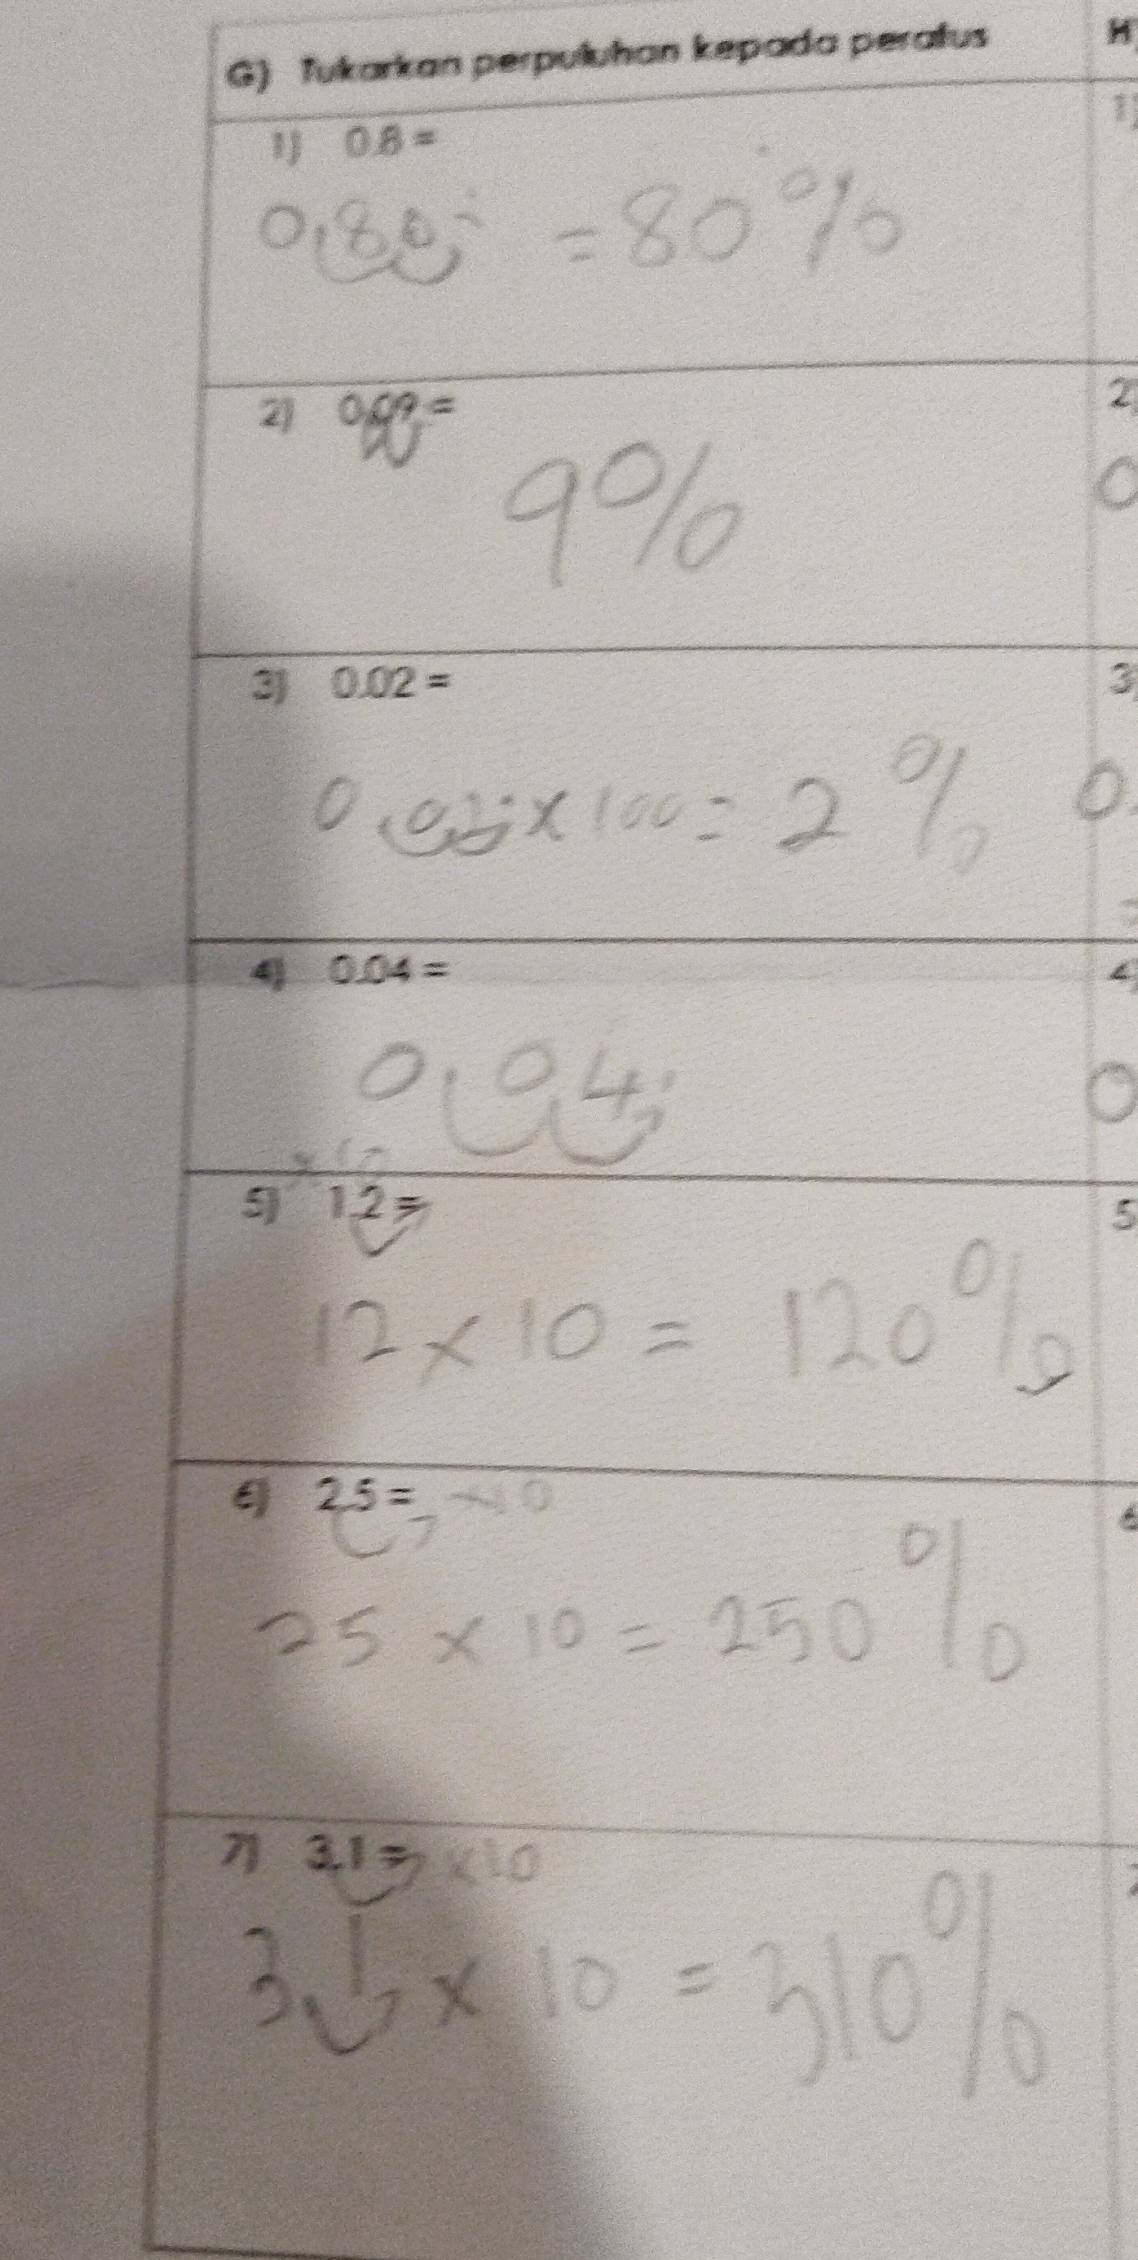 G) Tukarkan perpuluhan kepada peratus
H
1) 0.8 =
1)
0.80. = 80%
2) 0.09 =
2)
9%
0
3) 0.02 =
3)
0.02. x 100 = 2%
0.
=
4) 0.04 =
4)
0.04.
0
x 10
5) 1.2 =
5
12 x 10 = 120%
6) 2.5 = x10
6
25 x 10 = 250%
7) 3.1 = x10
3.1 x 10 = 310%